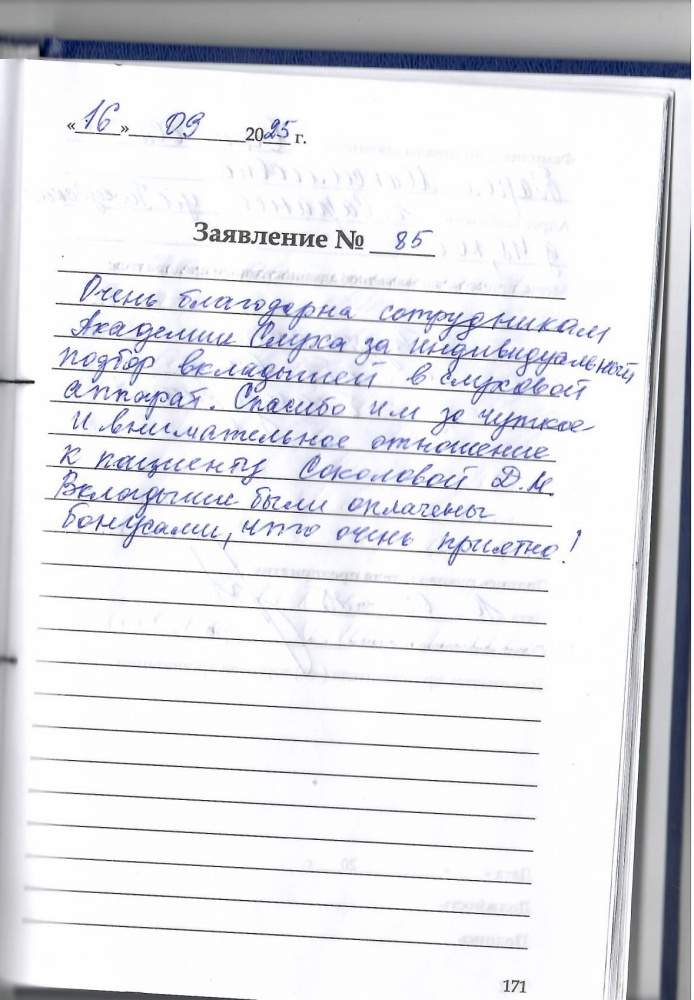 «16» 09 2025 г.
Заявление № 85
Очень благодарна сотрудникам
Академии Слуха за индивидуальный
подбор вкладышей в слуховой
аппарат. Спасибо им за чуткое
и внимательное отношение
к пациенту Соколовой Д.М.
Вкладыши были оплачены
бонусами, что очень приятно!
171